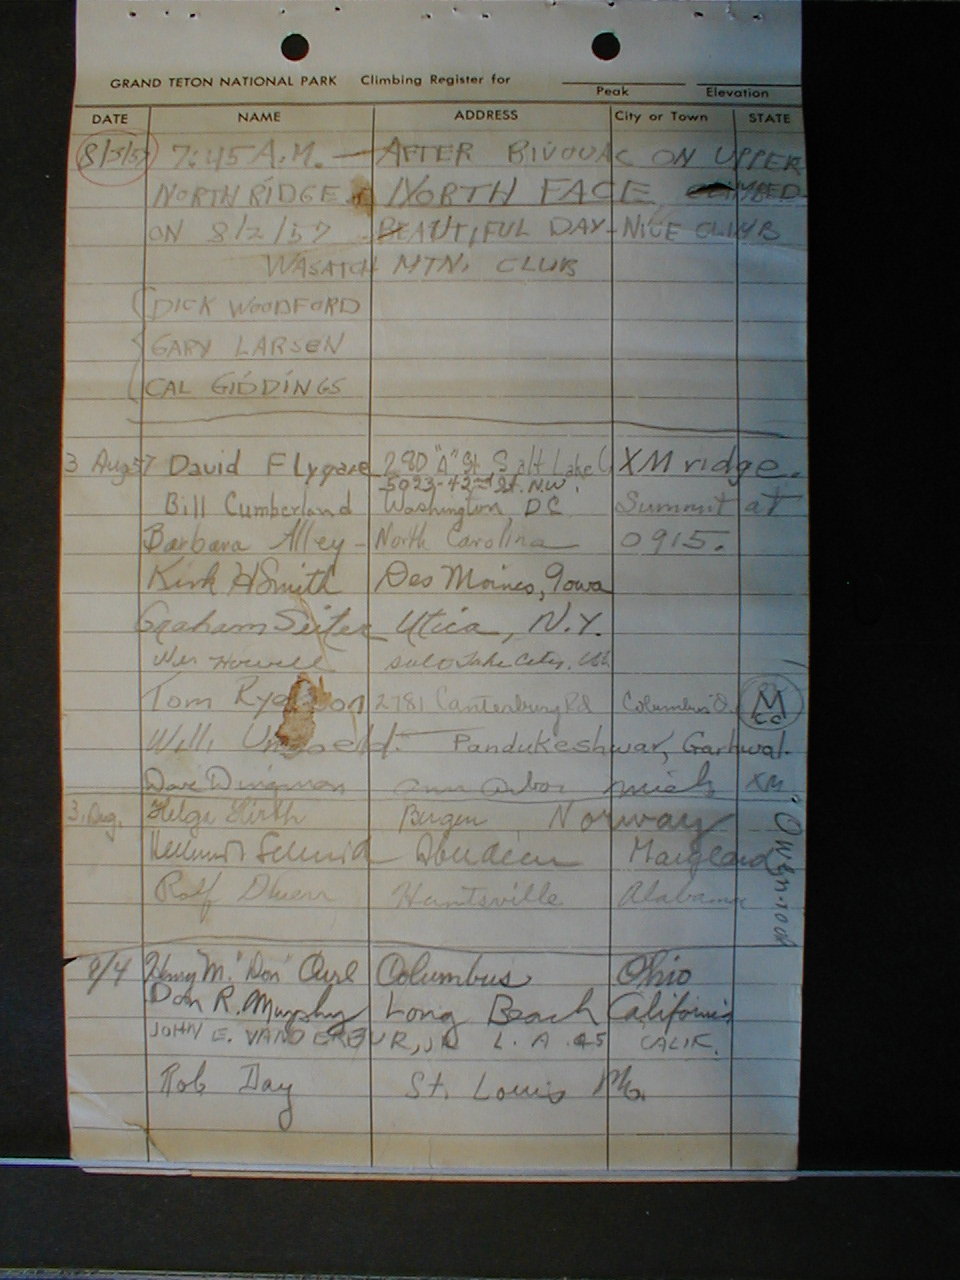 GRAND TETON NATIONAL PARK Climbing Register for
Peak Elevation
DATE NAME ADDRESS City or Town STATE
8/3/57 7:45 A.M. — AFTER BIVOUAC ON UPPER
NORTH RIDGE NORTH FACE CLIMBED
ON 8/2/57 BEAUTIFUL DAY - NICE CLIMB
WASATCH MTN. CLUB
DICK WOODFORD
GARY LARSEN
CAL GIDDINGS
3 Aug 57 David Flygare 280 "A" St Salt Lake C XM ridge.
5023-42nd St. N.W.
Bill Cumberland Washington DC Summit at
Barbara Alley - North Carolina 0915.
Kirk H Smith Des Moines, Iowa
Graham Utica, N.Y.
Howell Salt Lake City,
Tom 2781 Canterbury Rd Columbus O. M
CC
Willi Pandukeshwar, Garhwal.
Dave Dingman Ann Arbor Mich XM
3. Aug. Helge Bergen Norway
Schmid Aberdeen Maryland
Rolf Huntsville Alabama
8/4 Henry M. "Don" Columbus Ohio
Don R. Murphy Long Beach California
JOHN E. VANDERBUR, JR L. A. 45 CALIF.
Rob Day St. Louis Mo.